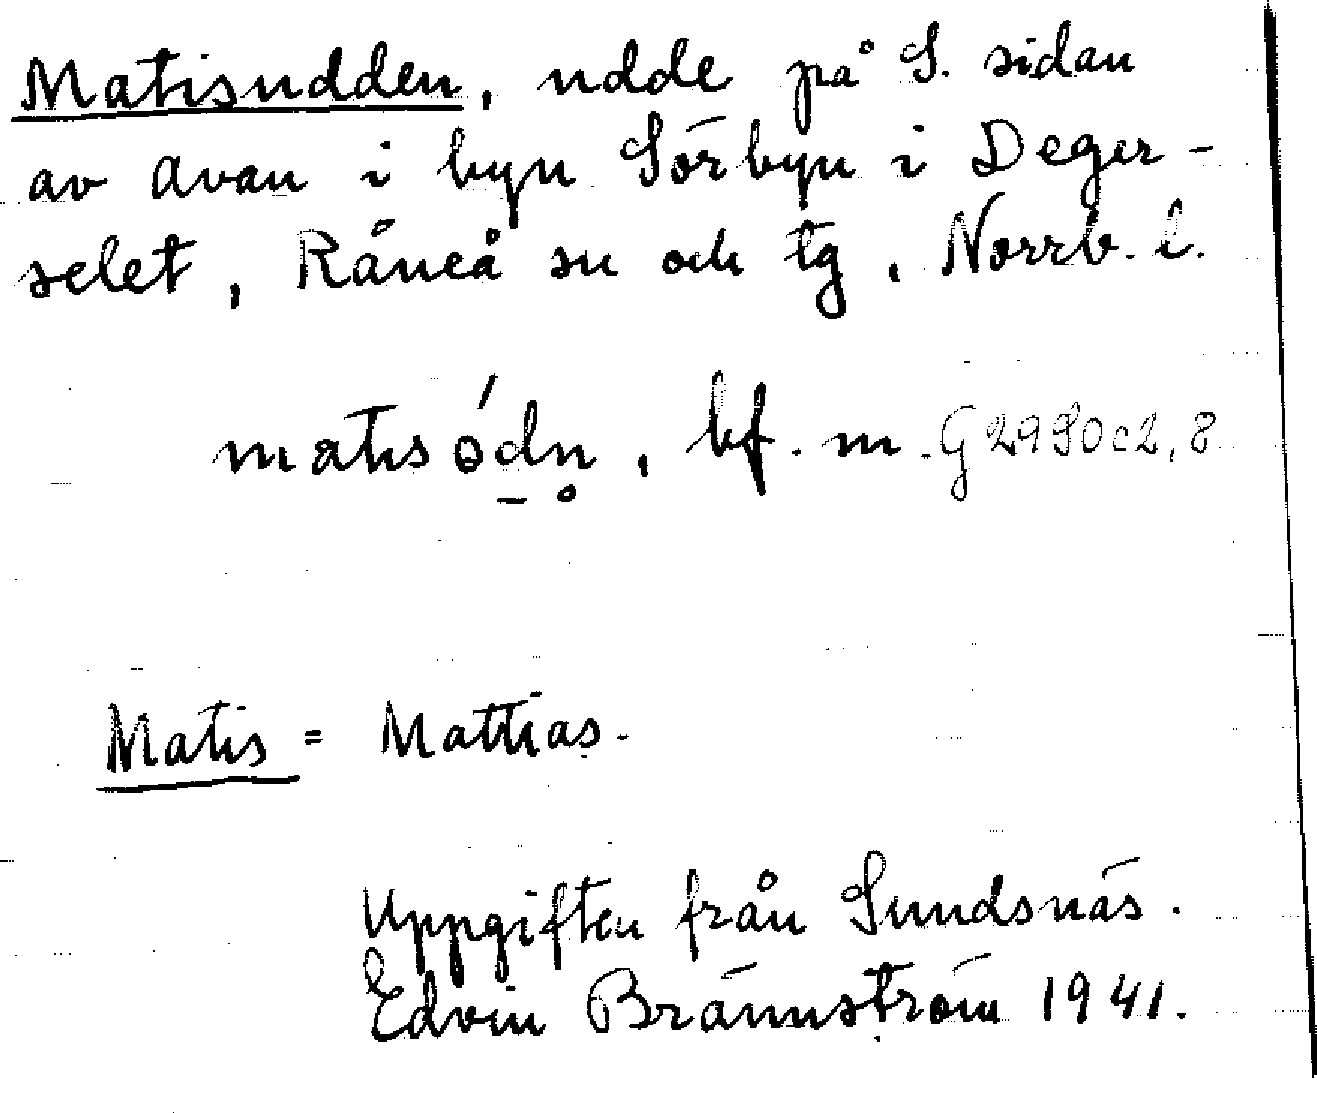 Matisudden, udde på S. sidan
av Avan i byn Sörbyn i Deger-
selet, Råneå sn och tg, Norrb. l.
matısó̱dn̥, bf. m. G2990c2,8
Matis = Mattias.
Uppgiften från Sundsnäs.
Edvin Brännström 1941.